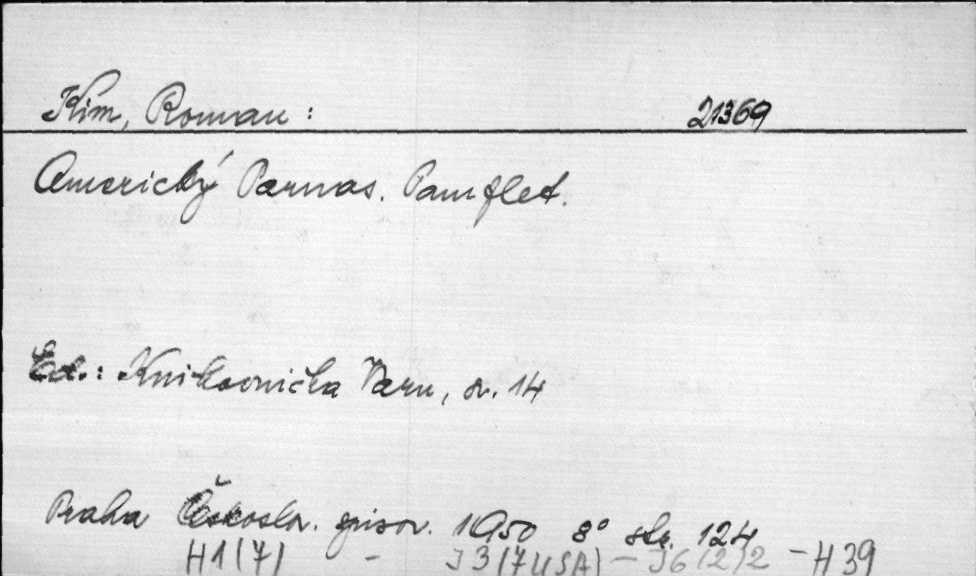 Kim, Roman: 21369
Americký Parnas. Pamflet.
Ed.: Knihovnička Varu, sv. 14
Praha Českoslov. spisov. 1950 8° str. 124
H1(7) - J3(7USA) - J6(2)2 - H39